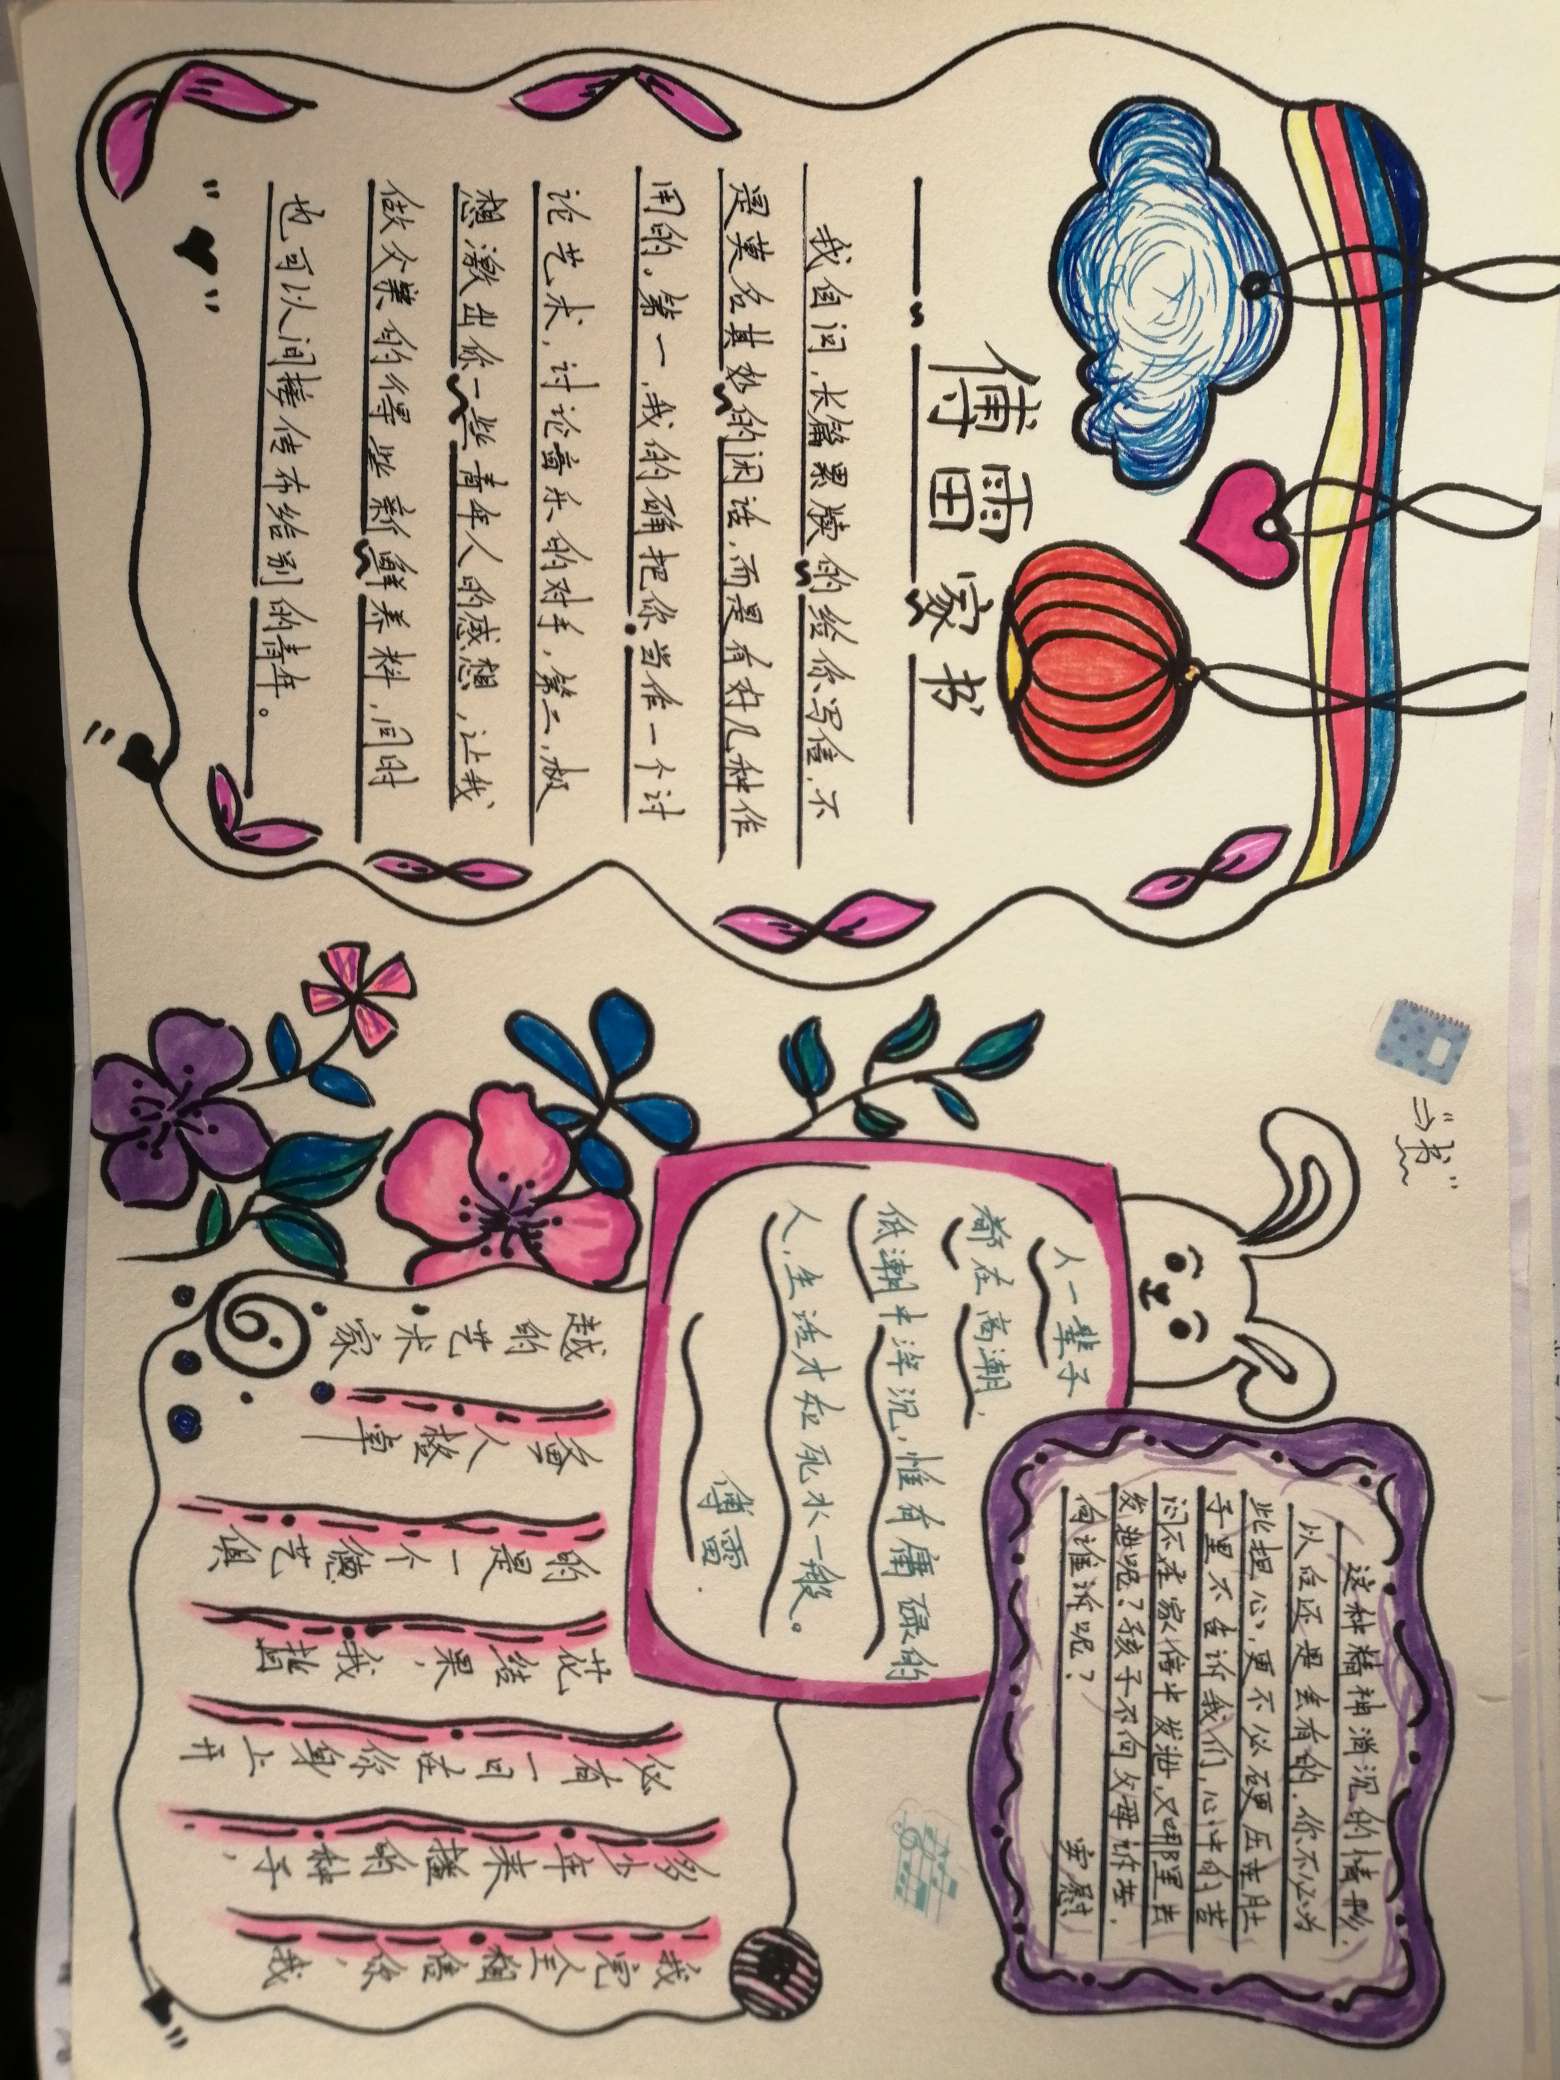 傅雷家书
我自问，长篇累牍的给你写信，不
是莫名其妙的闲话，而是有好几种作
用的。第一，我的确把你当作一个讨
论艺术，讨论音乐的对手，第二，极
想激出你一些青年人的感想，让我
做父亲的得些新鲜养料，同时
也可以间接传布给别的青年。
“书”
这种精神消沉的情形，
以后还是会有的。你不必为
此担心，更不必硬压在肚
子里不告诉我们，心中的苦
闷不在家信中发泄，又哪里去
发泄呢？孩子不向父母诉苦，
向谁诉呢？ 安慰
人一辈子
都在高潮，
低潮中浮沉，惟有庸碌的
人，生活才在死水一般。
傅雷.
我完全相信你，我
多少年来播的种子，
必有一日在你身上开
花结果，我指
的是一个德艺俱
备人格卓
越的艺术家